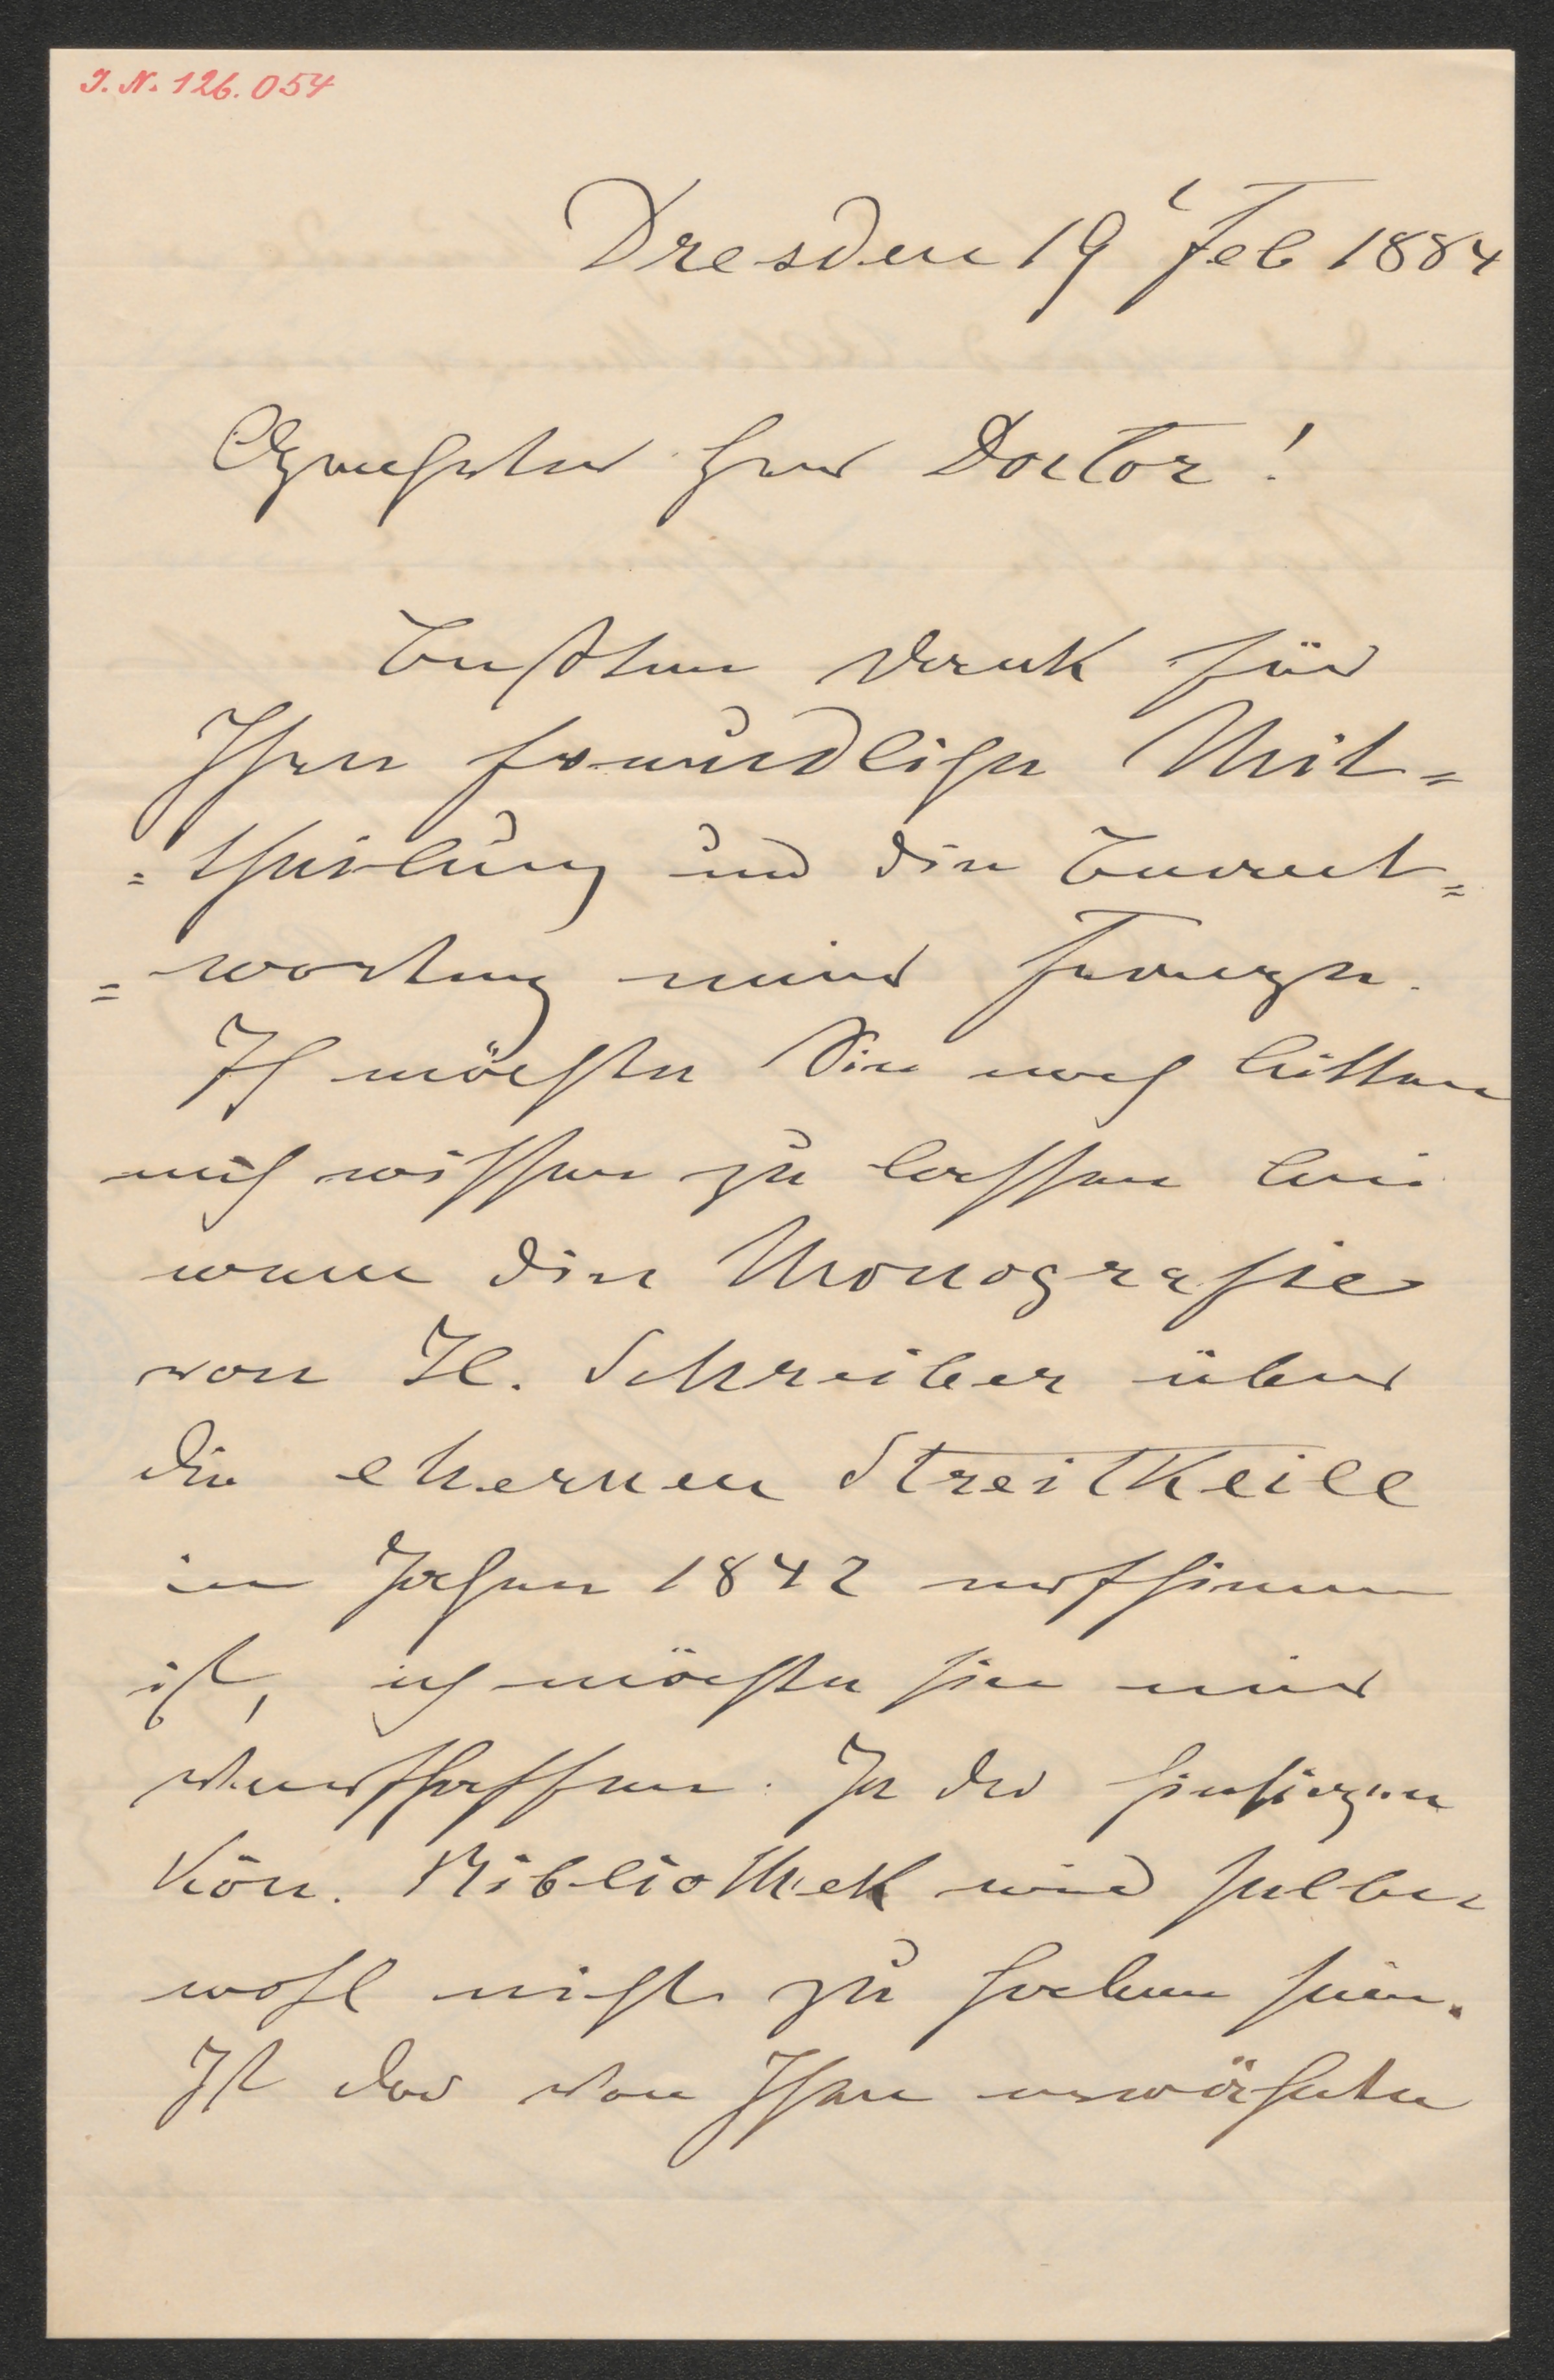 I. N. 126.054
Dresden 19 Feb 1884
Geehrter Herr Doctor!
Besten Dank für
Ihre freundliche Mit=
=theilung und die Beant=
=wortung meiner Fragen.
Ich möchte Sie noch bitten
mich wissen zu lassen bei
wem die Monografie
von H. Schreiber über
die ehernen Streitkeile
im Jahre 1842 erschienen
ist, ich möchte sie mir
verschaffen. In der hiesigen
Kön. Bibliothek wird selbe
wohl nicht zu haben sein.
Ist das von Ihnen erwähnte